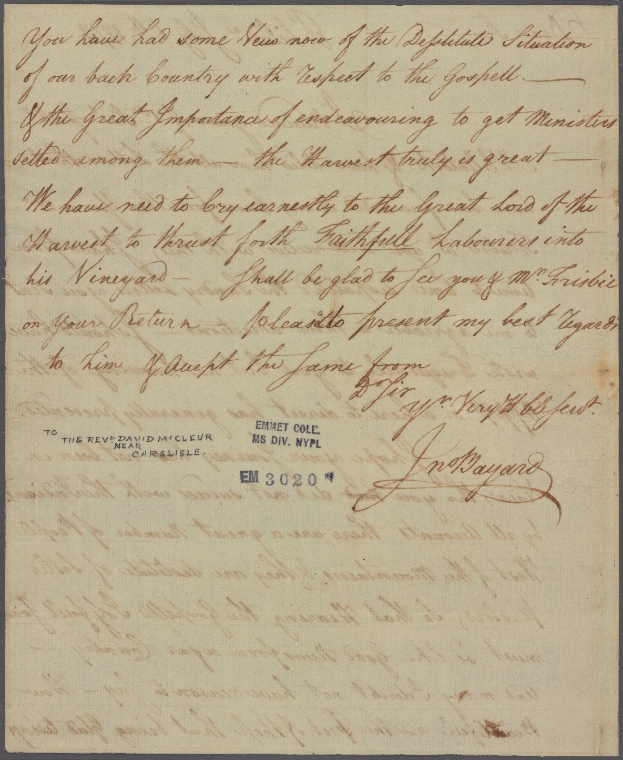 You have had some View now of the Destitute Situation
of our back Country with respect to the Gospell. —
& the Great Importance of endeavouring to get Ministers
setled among them — the Harvest truly is great —
We have need to Cry earnestly to the Great Lord of the
Harvest to thrust forth Faithfull Labourers into
his Vineyard — Shall be glad to See you & Mr. Frisbie
on your Return — please to present my best regards
to him & accept the Same from
Dr Sir
Yr. Very Hble Servt.
Jno Bayard
TO
THE REVD DAVID McCLEUR
NEAR
CARSLISLE.
EMMET COLL.
MS DIV. NYPL
EM 3020